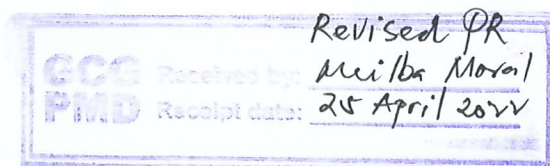 Revised PR
GCG Received by: Meilba Moral
PMD Receipt date: 25 April 2022